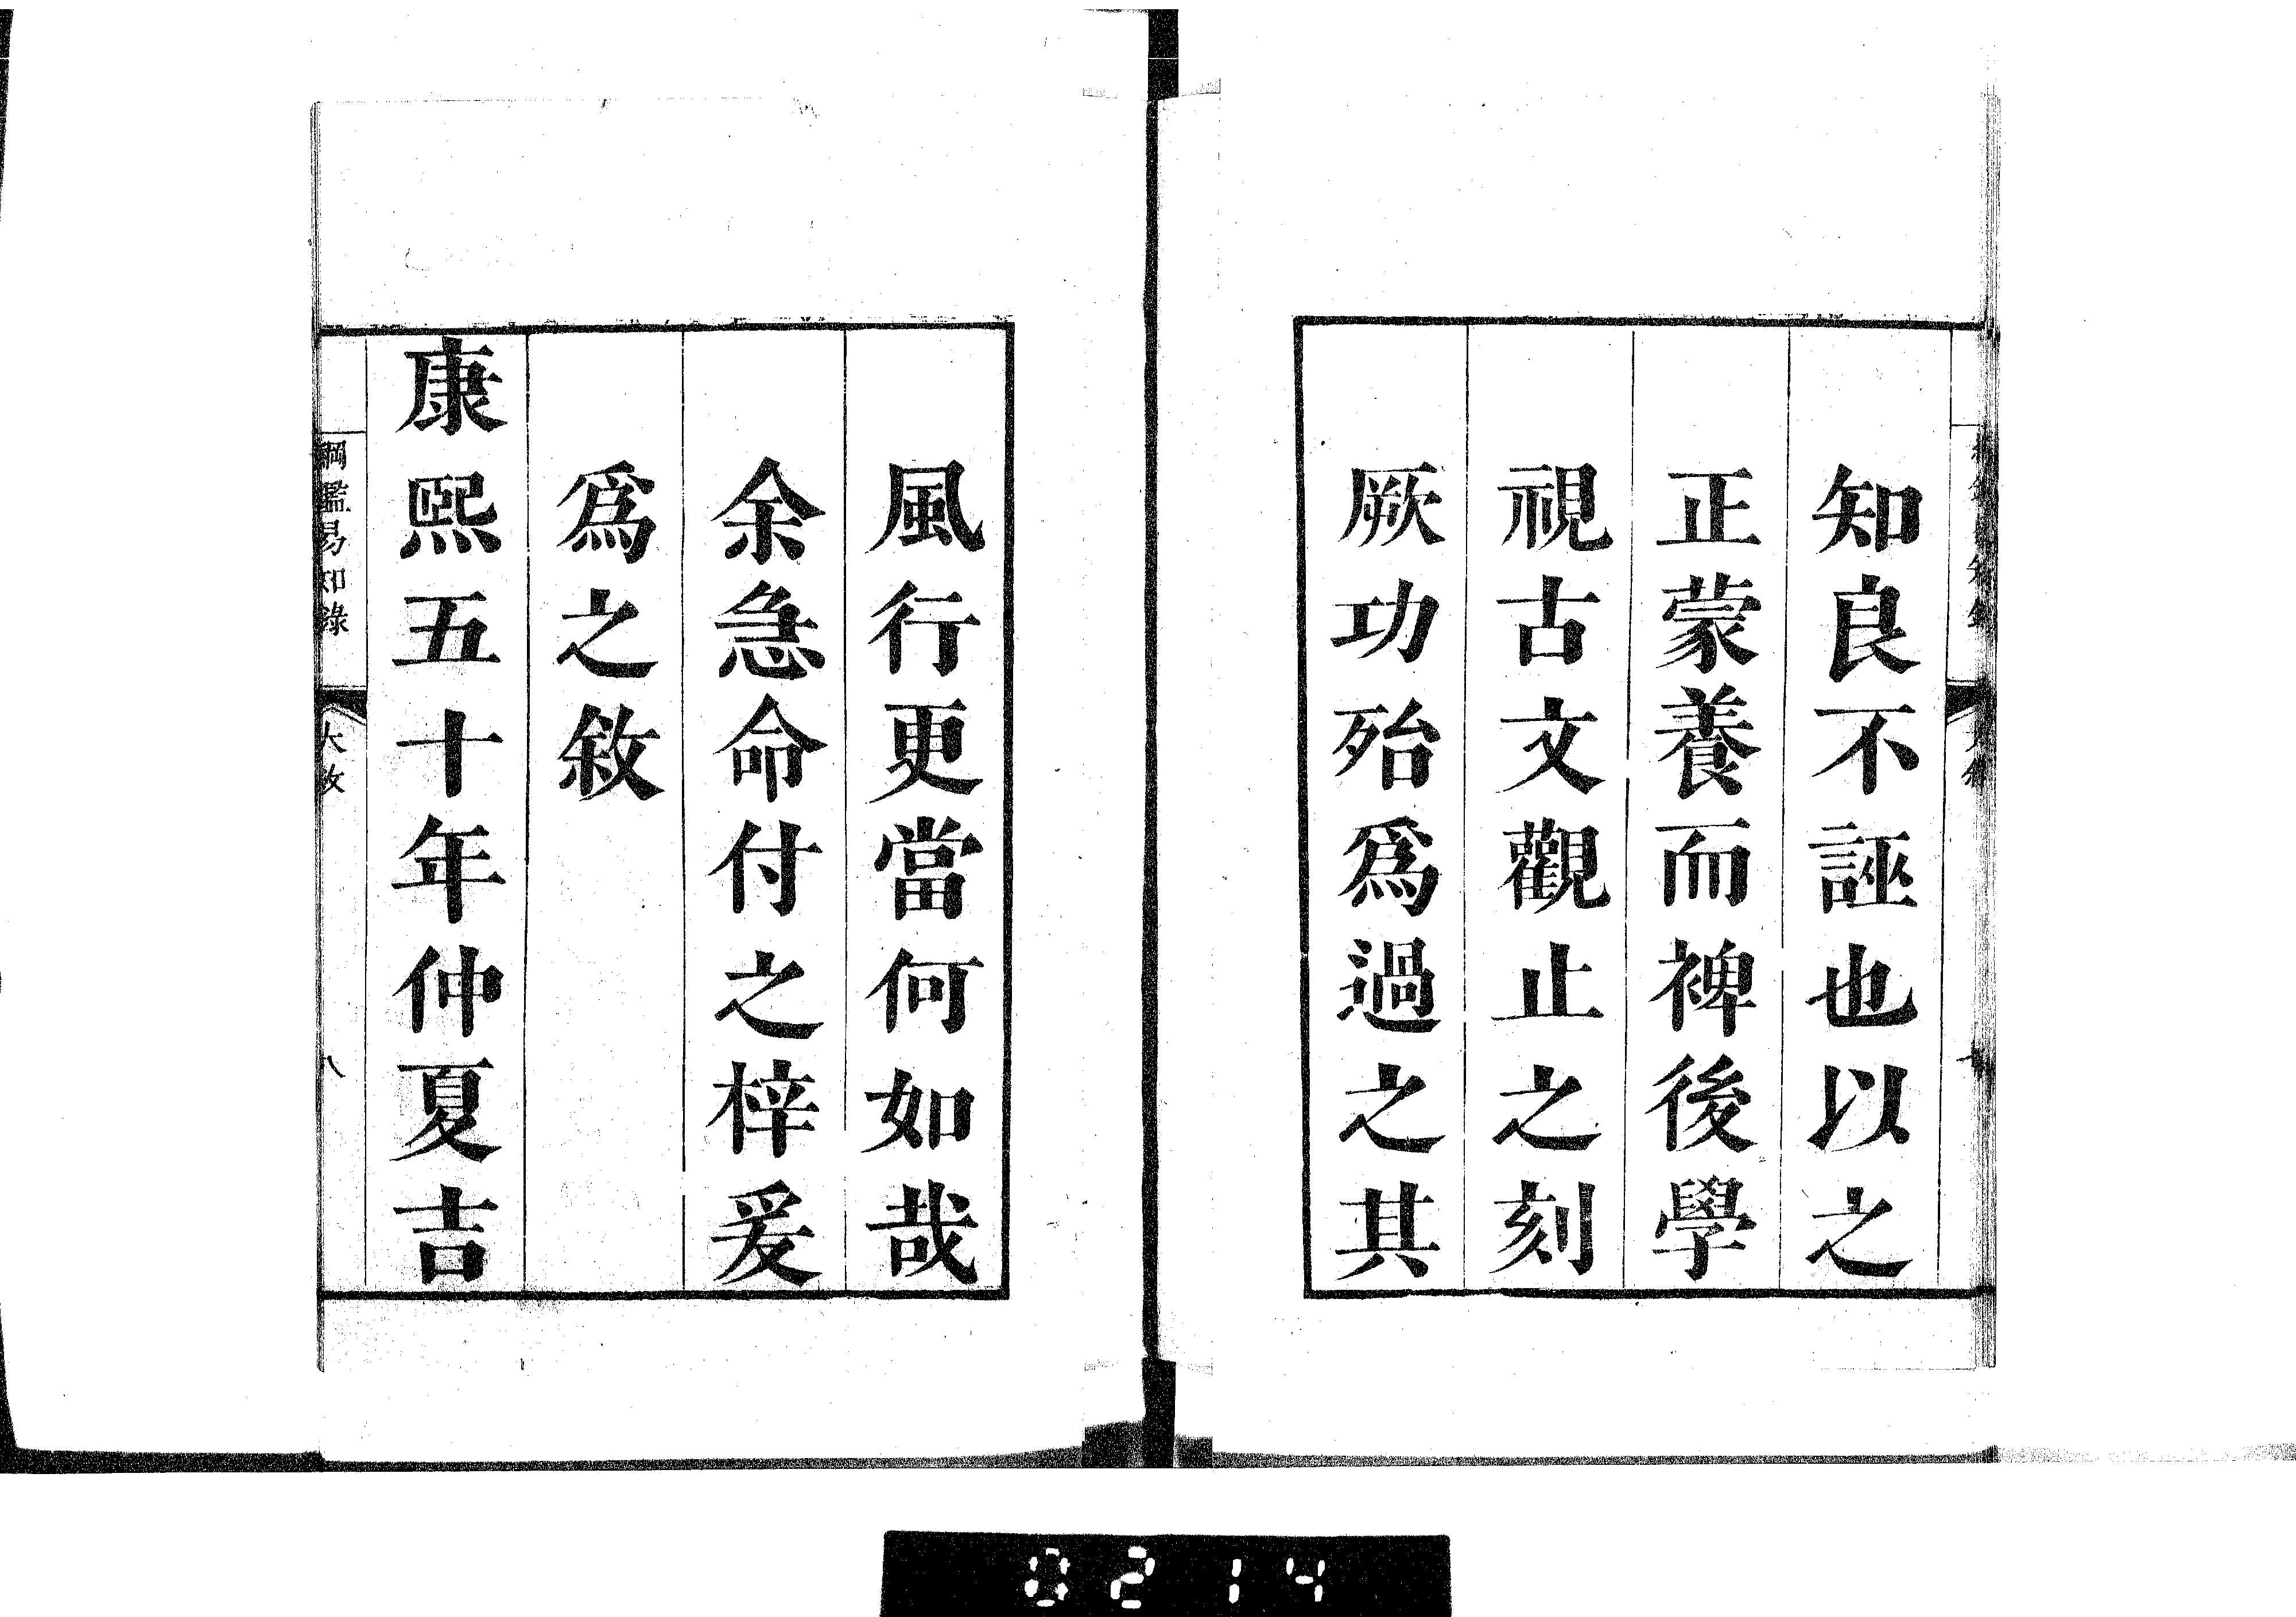 知良不誣也以之
正蒙養而裨後學
視古文觀止之刻
厥功殆爲過之其
風行更當何如哉
余急命付之梓爰
爲之敘
康熙五十年仲夏吉
綱鑑易知錄
大敘
八
0214